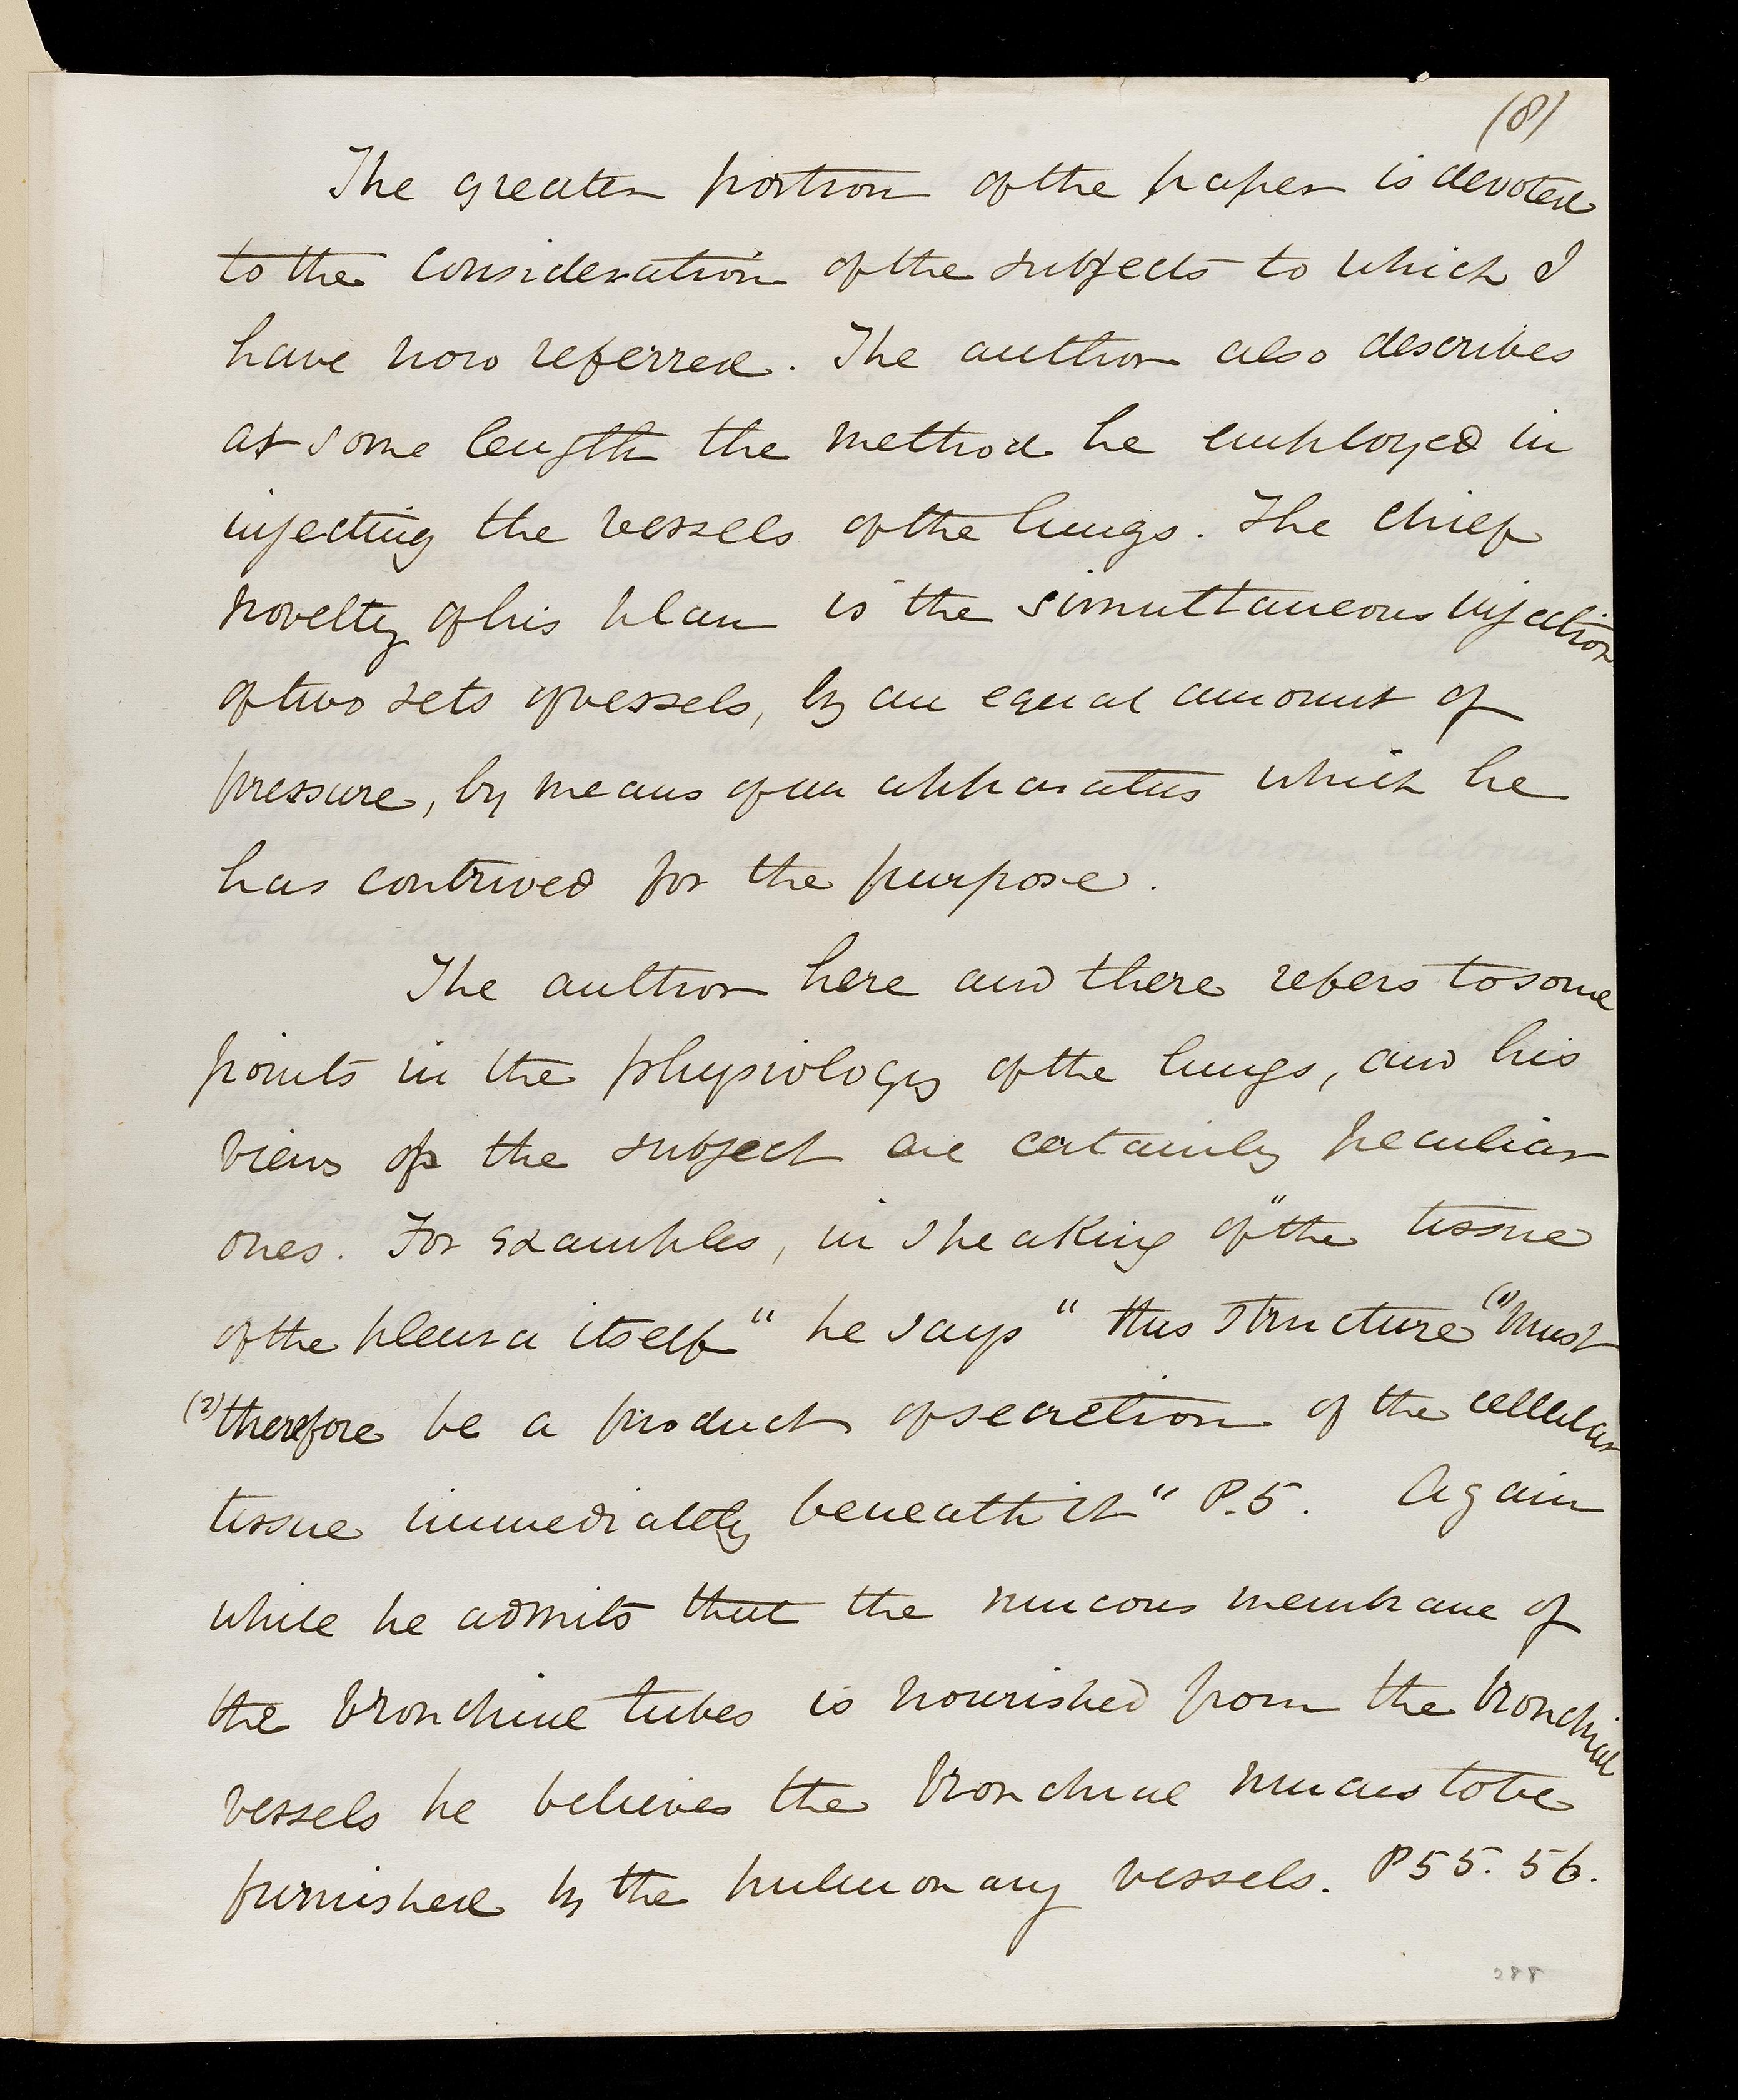 (8)
The greater portion of the paper is devoted
to the consideration of the subjects to which I
have now referred. The author also describes
at some length the method he employed in
injecting the vessels of the lungs. The chief
novelty of his plan is the simultaneous injection
of two sets of vessels, by an equal amount of
pressure, by means of an apparatus which he
has contrived for the purpose.
The author here and there refers to some
points in the physiology of the lungs, and his
views of the subject are certainly peculiar
ones. For examples, in speaking of "the tissue
of the pleura itself" he says "this structure (1) must
(2) therefore be a product of secretion of the cellular
tissue immediately beneath it" P.5. Again
while he admits that the mucous membrane of
the bronchial tubes is nourished from the bronchial
vessels he believes the bronchial mucus to be
furnished by the pulmonary vessels. P 55. 56.
288